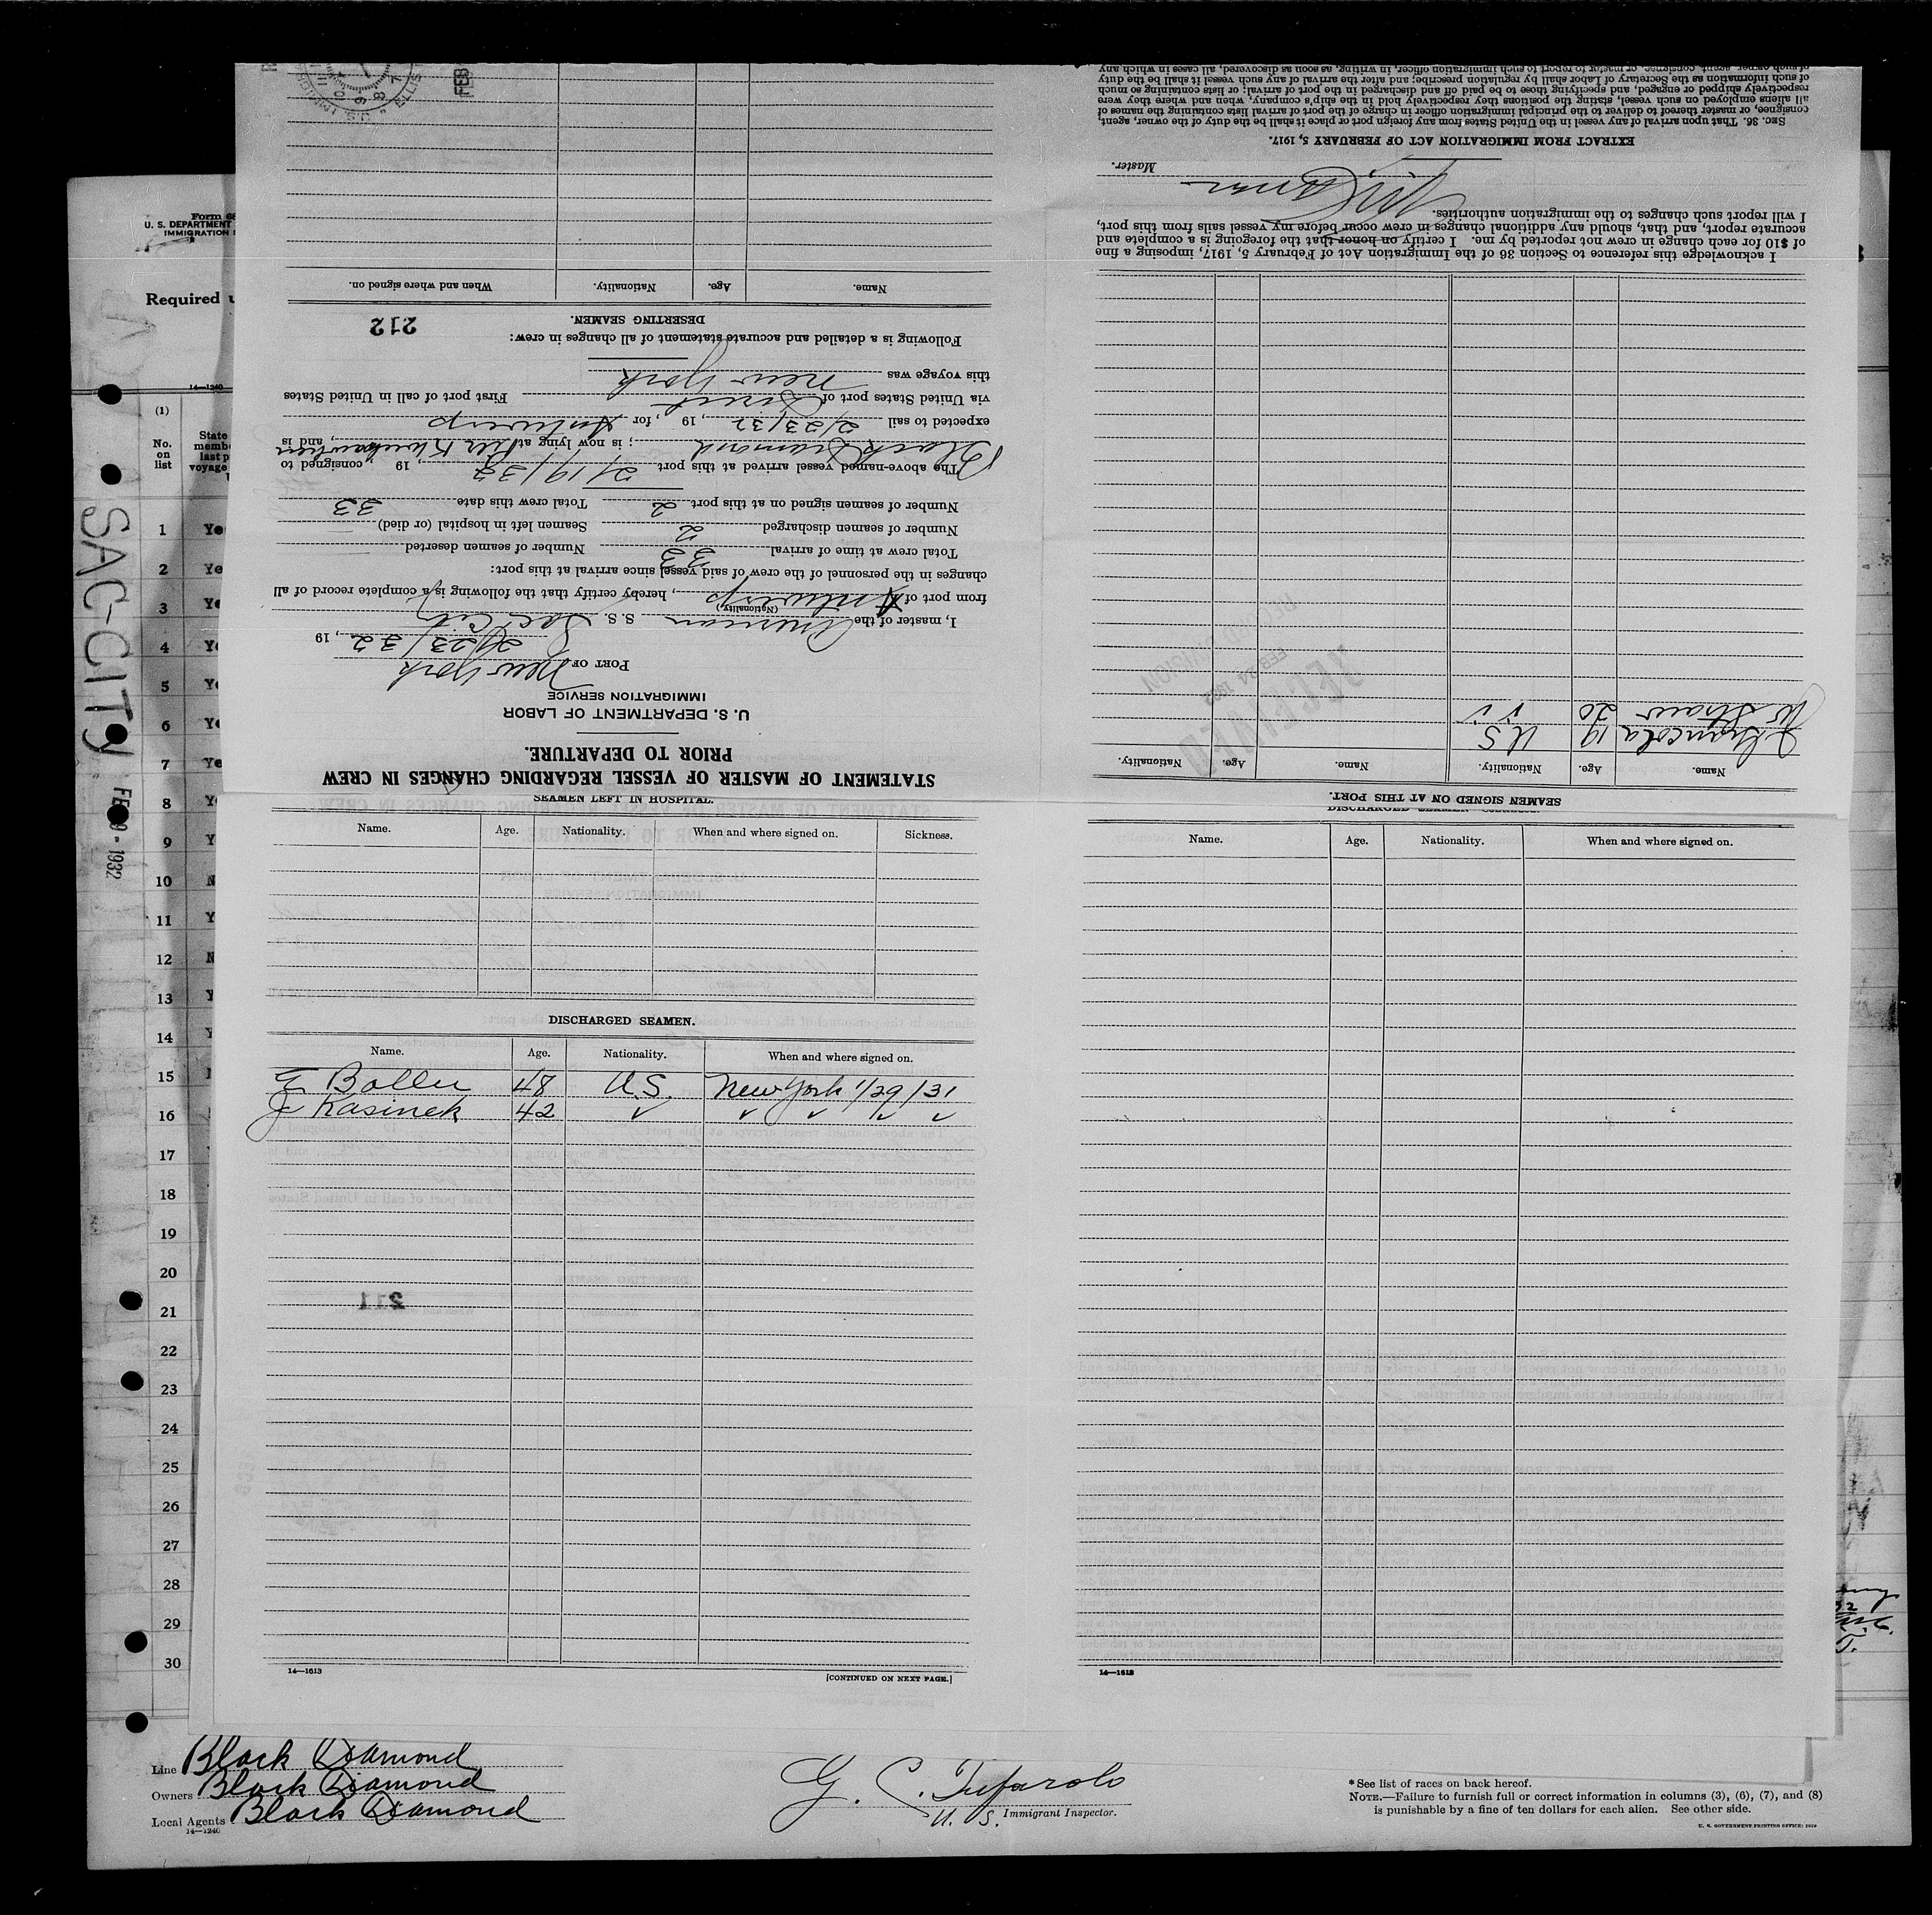 Form 68
U. S. DEPARTMENT
IMMIGRATION
Required
14—1240
(1)
No. on list
State
memb
last p
voyage
SAC-CITY
FEB 9 - 1932
1 Ye
2 Ye
3 Ye
4 Ye
5 Ye
6 Ye
7 Ye
8 Y
9 Y
10 N
11 Y
12 N
13 Y
14 Y
15
16
17
18
19
20
21
22
23
24
25
26
27
28
29
30
STATEMENT OF MASTER OF VESSEL REGARDING CHANGES IN CREW
PRIOR TO DEPARTURE.
U. S. DEPARTMENT OF LABOR
IMMIGRATION SERVICE
PORT OF New York
2/23/32, 19
I, master of the American S. S. Sac City
(Nationality)
from port of Antwerp, hereby certify that the following is a complete record of all
changes in the personnel of the crew of said vessel since arrival at this port:
Total crew at time of arrival 33 Number of seamen deserted
Number of seamen discharged 2 Seamen left in hospital (or died)
Number of seamen signed on at this port 2 Total crew this date 33
The above-named vessel arrived at this port 2/19/32, 19 , consigned to
Black Diamond ; is now lying at Pier K Weehawken, and is
expected to sail 2/23/32, 19 , for Antwerp
via United States port of Direct First port of call in United States
this voyage was New York
Following is a detailed and accurate statement of all changes in crew:
DESERTING SEAMEN.
212
Name. Age. Nationality. When and where signed on.
FEB
SEAMEN SIGNED ON AT THIS PORT.
Name. Age. Nationality. Name. Age. Nationality.
19 U S
W Straw 20 v v
RECEIVED
FEB 24 1932
I acknowledge this reference to Section 36 of the Immigration Act of February 5, 1917, imposing a fine
of $10 for each change in crew not reported by me. I certify on honor that the foregoing is a complete and
accurate report, and that, should any additional changes in crew occur before my vessel sails from this port,
I will report such changes to the immigration authorities.
Master.
EXTRACT FROM IMMIGRATION ACT OF FEBRUARY 5, 1917.
SEC. 36. That upon arrival of any vessel in the United States from any foreign port or place it shall be the duty of the owner, agent,
consignee, or master thereof to deliver to the principal immigration officer in charge of the port of arrival lists containing the names of
all aliens employed on such vessel, stating the positions they respectively hold in the ship's company, when and where they were
respectively shipped or engaged, and specifying those to be paid off and discharged in the port of arrival; or lists containing so much
of such information as the Secretary of Labor shall by regulation prescribe; and after the arrival of any such vessel it shall be the duty
of such owner, agent, consignee, or master to report to such immigration officer, in writing, as soon as discovered, all cases in which any
SEAMEN LEFT IN HOSPITAL.
Name. Age. Nationality. When and where signed on. Sickness.
DISCHARGED SEAMEN.
Name. Age. Nationality. When and where signed on.
E Boller 48 U.S. New York 1/29/31
J Kasinek 42 v v v v v
211
14—1613
[CONTINUED ON NEXT PAGE.]
Name. Age. Nationality. When and where signed on.
14—1613
Line Black Diamond
Owners Black Diamond
Local Agents Black Diamond
14—1240
U. S. Immigrant Inspector.
* See list of races on back hereof.
NOTE.—Failure to furnish full or correct information in columns (3), (6), (7), and (8)
is punishable by a fine of ten dollars for each alien. See other side.
U. S. GOVERNMENT PRINTING OFFICE: 1929